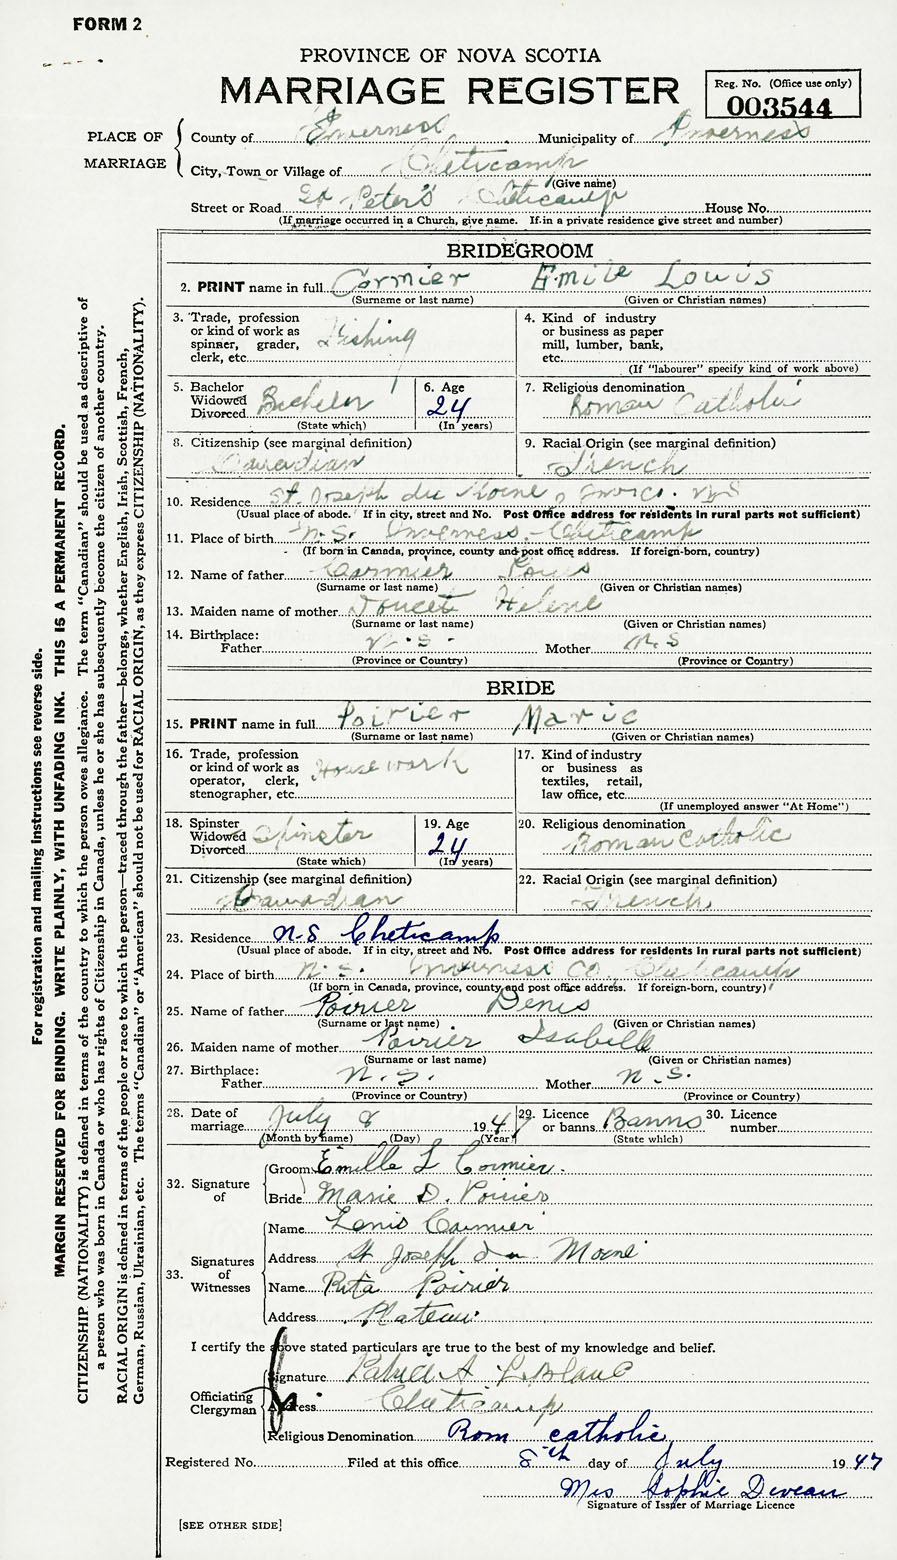 FORM 2
PROVINCE OF NOVA SCOTIA
MARRIAGE REGISTER
Reg. No. (Office use only)
003544
PLACE OF MARRIAGE
County of Inverness Municipality of Inverness
City, Town or Village of Cheticamp
(Give name)
Street or Road St Peter's Cheticamp House No.
(If marriage occurred in a Church, give name. If in a private residence give street and number)
BRIDEGROOM
2. PRINT name in full Cormier Emile Louis
(Surname or last name) (Given or Christian names)
3. Trade, profession
or kind of work as
spinner, grader,
clerk, etc. Fishing
4. Kind of industry
or business as paper
mill, lumber, bank,
etc.
(If "labourer" specify kind of work above)
5. Bachelor
Widowed
Divorced Bachelor
(State which)
6. Age
24
(In years)
7. Religious denomination
Roman Catholic
8. Citizenship (see marginal definition)
Canadian
9. Racial Origin (see marginal definition)
French
10. Residence St. Joseph du Moine, Inv. Co. N.S
(Usual place of abode. If in city, street and No. Post Office address for residents in rural parts not sufficient)
11. Place of birth N.S. Inverness - Cheticamp
(If born in Canada, province, county and post office address. If foreign-born, country)
12. Name of father Cormier Louis
(Surname or last name) (Given or Christian names)
13. Maiden name of mother Doucet Helene
(Surname or last name) (Given or Christian names)
14. Birthplace:
Father N.S. Mother N.S
(Province or Country) (Province or Country)
BRIDE
15. PRINT name in full Poirier Marie
(Surname or last name) (Given or Christian names)
16. Trade, profession
or kind of work as
operator, clerk,
stenographer, etc. House work
17. Kind of industry
or business as
textiles, retail,
law office, etc.
(If unemployed answer "At Home")
18. Spinster
Widowed
Divorced Spinster
(State which)
19. Age
24
(In years)
20. Religious denomination
Roman Catholic
21. Citizenship (see marginal definition)
Canadian
22. Racial Origin (see marginal definition)
French
23. Residence N-S Cheticamp
(Usual place of abode. If in city, street and No. Post Office address for residents in rural parts not sufficient)
24. Place of birth N.S. Inverness Co. Cheticamp
(If born in Canada, province, county and post office address. If foreign-born, country)
25. Name of father Poirier Denis
(Surname or last name) (Given or Christian names)
26. Maiden name of mother Poirier Isabelle
(Surname or last name) (Given or Christian names)
27. Birthplace:
Father N.S. Mother N.S.
(Province or Country) (Province or Country)
28. Date of
marriage July 8 1947
(Month by name) (Day) (Year)
29. Licence
or banns Banns
(State which)
30. Licence
number
32. Signature of
Groom Emille L Cormier.
Bride Marie D. Poirier
33. Signatures of Witnesses
Name Cormier
Address St Joseph du Moine
Name Rita Poirier
Address Plateau
I certify the above stated particulars are true to the best of my knowledge and belief.
Officiating Clergyman
Signature A LeBlanc
Address Cheticamp
Religious Denomination Rom catholic
Registered No. Filed at this office 8th day of July 1947
Mrs Sophie Deveau
Signature of Issuer of Marriage Licence
[SEE OTHER SIDE]
For registration and mailing instructions see reverse side.
MARGIN RESERVED FOR BINDING. WRITE PLAINLY, WITH UNFADING INK. THIS IS A PERMANENT RECORD.
CITIZENSHIP (NATIONALITY) is defined in terms of the country to which the person owes allegiance. The term "Canadian" should be used as descriptive of
a person who was born in Canada or who has rights of Citizenship in Canada, unless he or she has subsequently become the citizen of another country.
RACIAL ORIGIN is defined in terms of the people or race to which the person—traced through the father—belongs, whether English, Irish, Scottish, French,
German, Russian, Ukrainian, etc. The terms "Canadian" or "American" should not be used for RACIAL ORIGIN, as they express CITIZENSHIP (NATIONALITY).